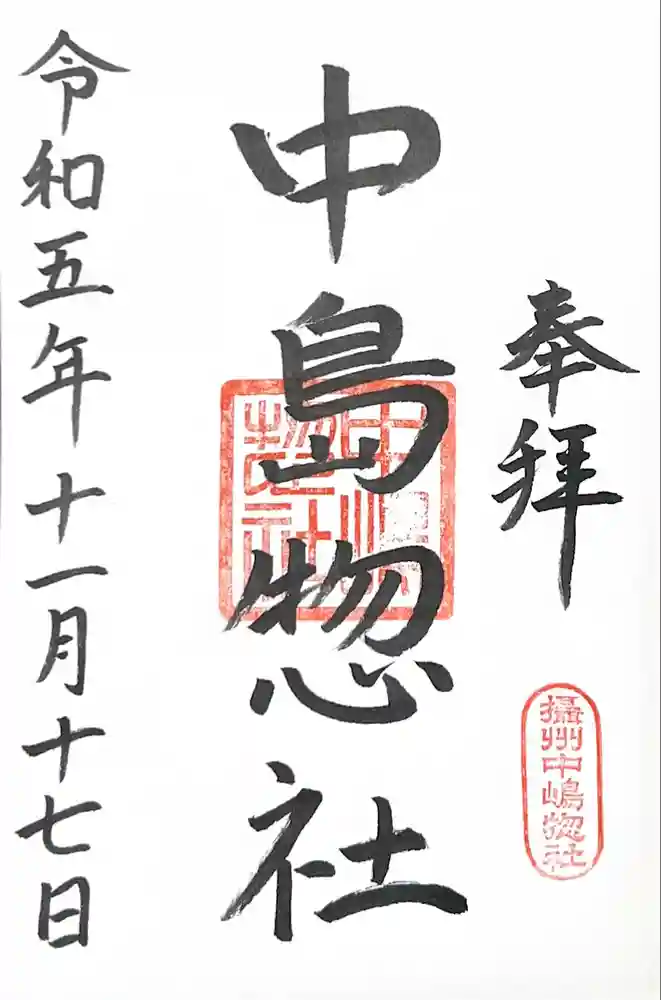 奉拝
攝州中嶋惣社
中島惣社
中嶋惣社
令和五年十一月十七日